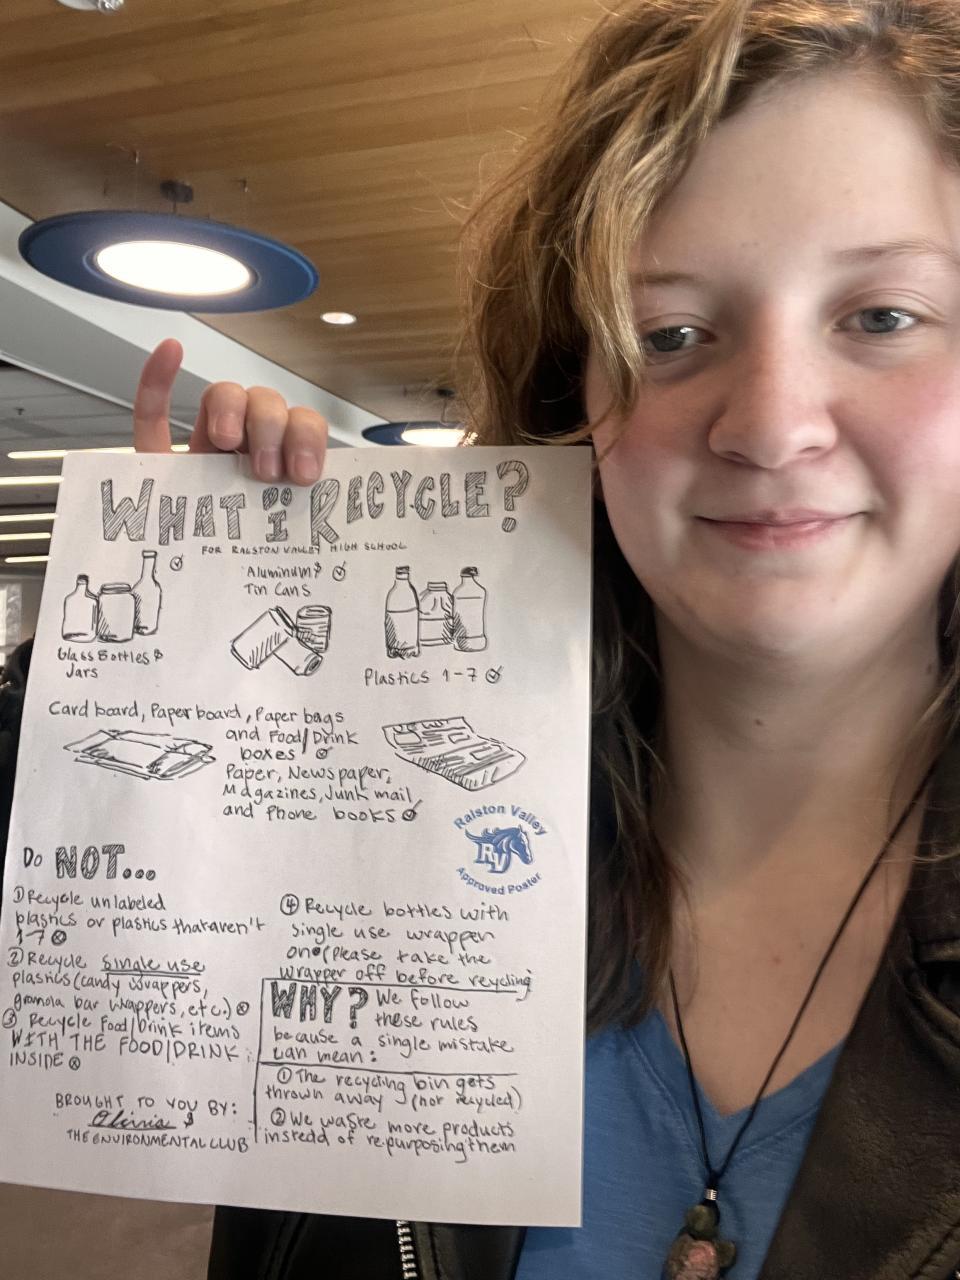 WHAT DO I RECYCLE?
FOR RALSTON VALLEY HIGH SCHOOL
Glass Bottles &
Jars
Aluminum &
Tin Cans
Plastics 1-7
Cardboard, Paperboard, Paper bags
and Food/Drink
boxes
Paper, Newspaper,
Magazines, Junk mail
and Phone books
Ralston Valley
RV
Approved Poster
Do NOT...
① Recycle unlabeled
plastics or plastics that aren't
1-7
② Recycle single use
plastics (candy wrappers,
granola bar wrappers, etc.)
③ Recycle Food/Drink items
WITH THE FOOD/DRINK
INSIDE
④ Recycle bottles with
single use wrapper
on (Please take the
wrapper off before recycling
WHY? We follow
these rules
because a single mistake
can mean:
① The recycling bin gets
thrown away (not recycled)
② We waste more products
instead of repurposing them
BROUGHT TO YOU BY:
&
THE ENVIRONMENTAL CLUB